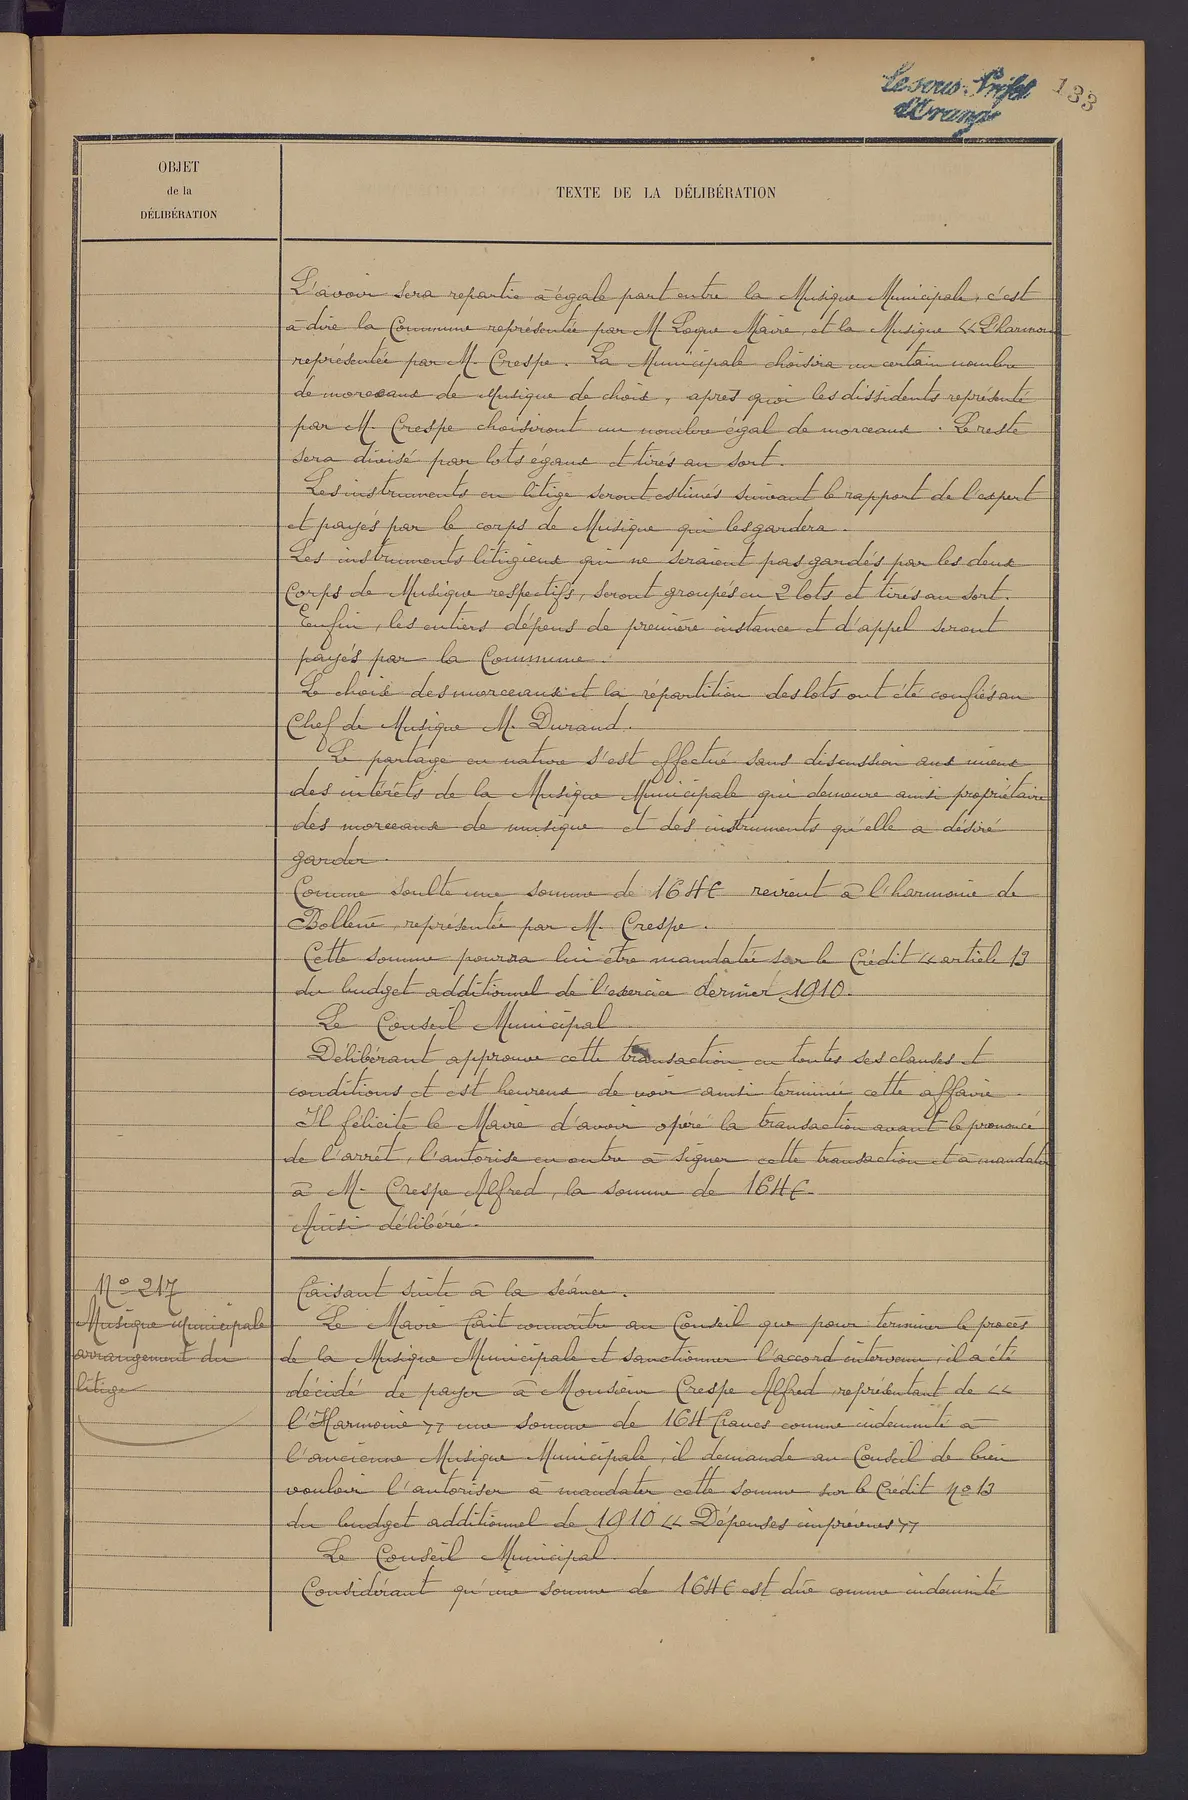 Le sous-Préfet
d'Orange
133
OBJET
de la
DÉLIBÉRATION
TEXTE DE LA DÉLIBÉRATION
L'avoir sera repartie à égale part entre la Musique Municipale, c'est
à dire la Commune représentée par M. Loque Maire, et la Musique « L'harmonie
représentée par M. Crespe. La Municipale choisira un certain nombre
de morceaux de Musique de choix, après quoi les dissidents représenté
par M. Crespe choisiront un nombre égal de morceaux. Le reste
sera divisé par lots égaux et tirés au sort.
Les instruments en litige seront estimés suivant le rapport de l'expert
et payés par le corps de Musique qui les gardera.
Les instruments litigieux qui ne seraient pas gardés par les deux
Corps de Musique respectifs, seront groupés en 2 lots et tirés au sort.
Enfin, les entiers dépens de première instance et d'appel seront
payés par la Commune.
Le choix des morceaux et la répartition des lots ont été confiés au
Chef de Musique M. Durand.
Le partage en nature s'est effectué sans discussion aux mieux
des intérêts de la Musique Municipale qui demeure ainsi propriétaire
des morceaux de musique et des instruments qu'elle a désiré
garder.
Comme soulte une somme de 164f revient à l'harmonie de
Bollène, représentée par M. Crespe.
Cette somme pourra lui être mandatée sur le Crédit « article 13
du budget additionnel de l'exercice dernier 1910.
Le Conseil Municipal
Délibérant approuve cette transaction en toutes ses clauses et
conditions et est heureux de voir ainsi terminée cette affaire.
Il félicite le Maire d'avoir opéré la transaction avant le prononcé
de l'arrêt, l'autorise en outre à signer cette transaction et à mandater
à M. Crespe Alfred, la somme de 164f.
Ainsi délibéré.
N° 217
Musique Municipale
arrangement du
litige
Faisant suite à la séance.
Le Maire fait connaître au Conseil que pour terminer le procès
de la Musique Municipale et sanctionner l'accord intervenu, il a été
décidé de payer à Monsieur Crespe Alfred, représentant de «
l'Harmonie » une somme de 164 francs comme indemnité à
l'ancienne Musique Municipale, il demande au Conseil de bien
vouloir l'autoriser à mandater cette somme sur le Crédit N° 13
du budget additionnel de 1910 « Dépenses imprévues »
Le Conseil Municipal.
Considérant qu'une somme de 164f est dûe comme indemnité